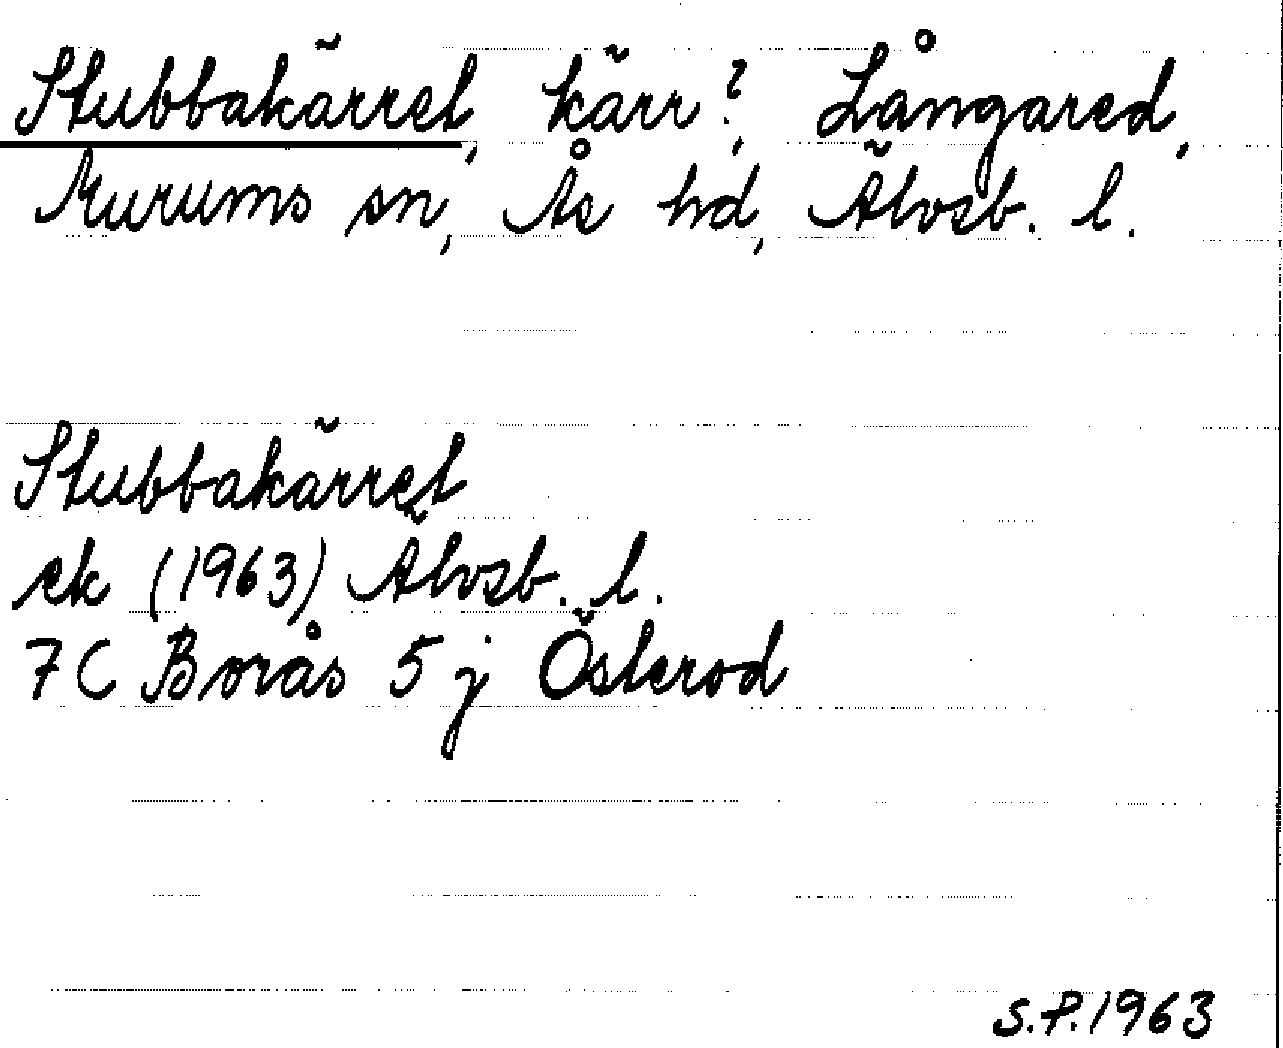 Stubbakärret, kärr?, Långared,
Murums sn, Ås hd, Älvsb. l.
Stubbakärret
ek (1963) Älvsb. l.
7C Borås 5j Österod
S.P. 1963